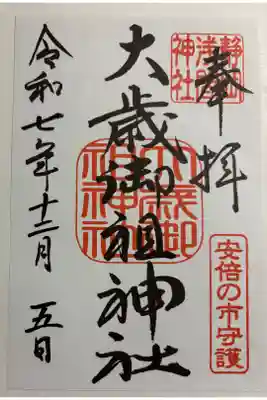 奉拝
静岡
浅間
神社
大歳御祖神社
大歳御
祖神社
安倍の市守護
令和七年十二月 五日